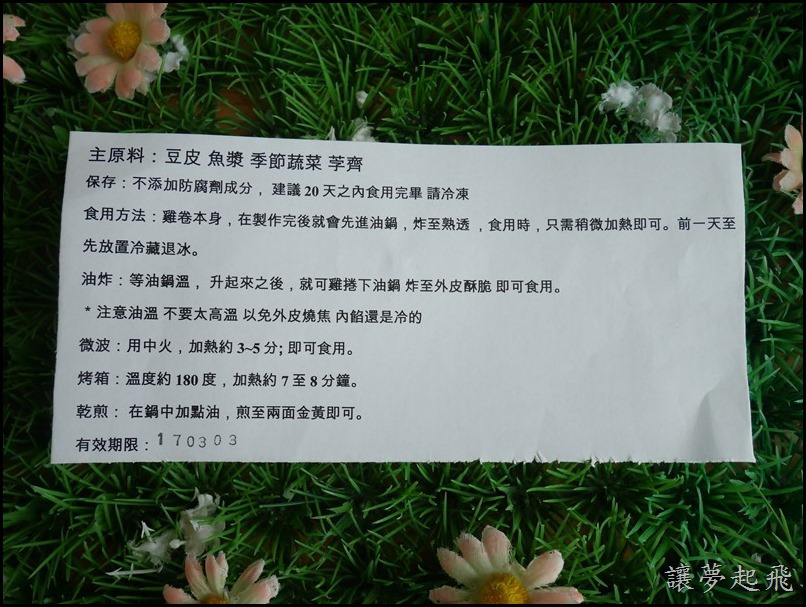 主原料：豆皮 魚漿 季節蔬菜 荸薺
保存：不添加防腐劑成分， 建議 20 天之內食用完畢 請冷凍
食用方法：雞卷本身，在製作完後就會先進油鍋，炸至熟透 ，食用時，只需稍微加熱即可。前一天至
先放置冷藏退冰。
油炸：等油鍋溫， 升起來之後，就可雞捲下油鍋 炸至外皮酥脆 即可食用。
* 注意油溫 不要太高溫 以免外皮燒焦 內餡還是冷的
微波：用中火，加熱約 3~5 分; 即可食用。
烤箱：溫度約 180 度，加熱約 7 至 8 分鐘。
乾煎： 在鍋中加點油，煎至兩面金黃即可。
有效期限：170303
讓夢起飛